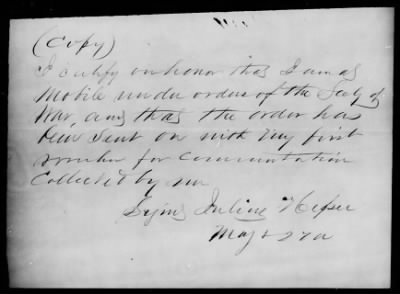 (Copy)
I certify on honor that I am at
Mobile under orders of the Secty of
War, and that the order has
been sent on with my first
voucher for Commutation
Collected by me
Signed Julius Hesse
Maj & 2 M